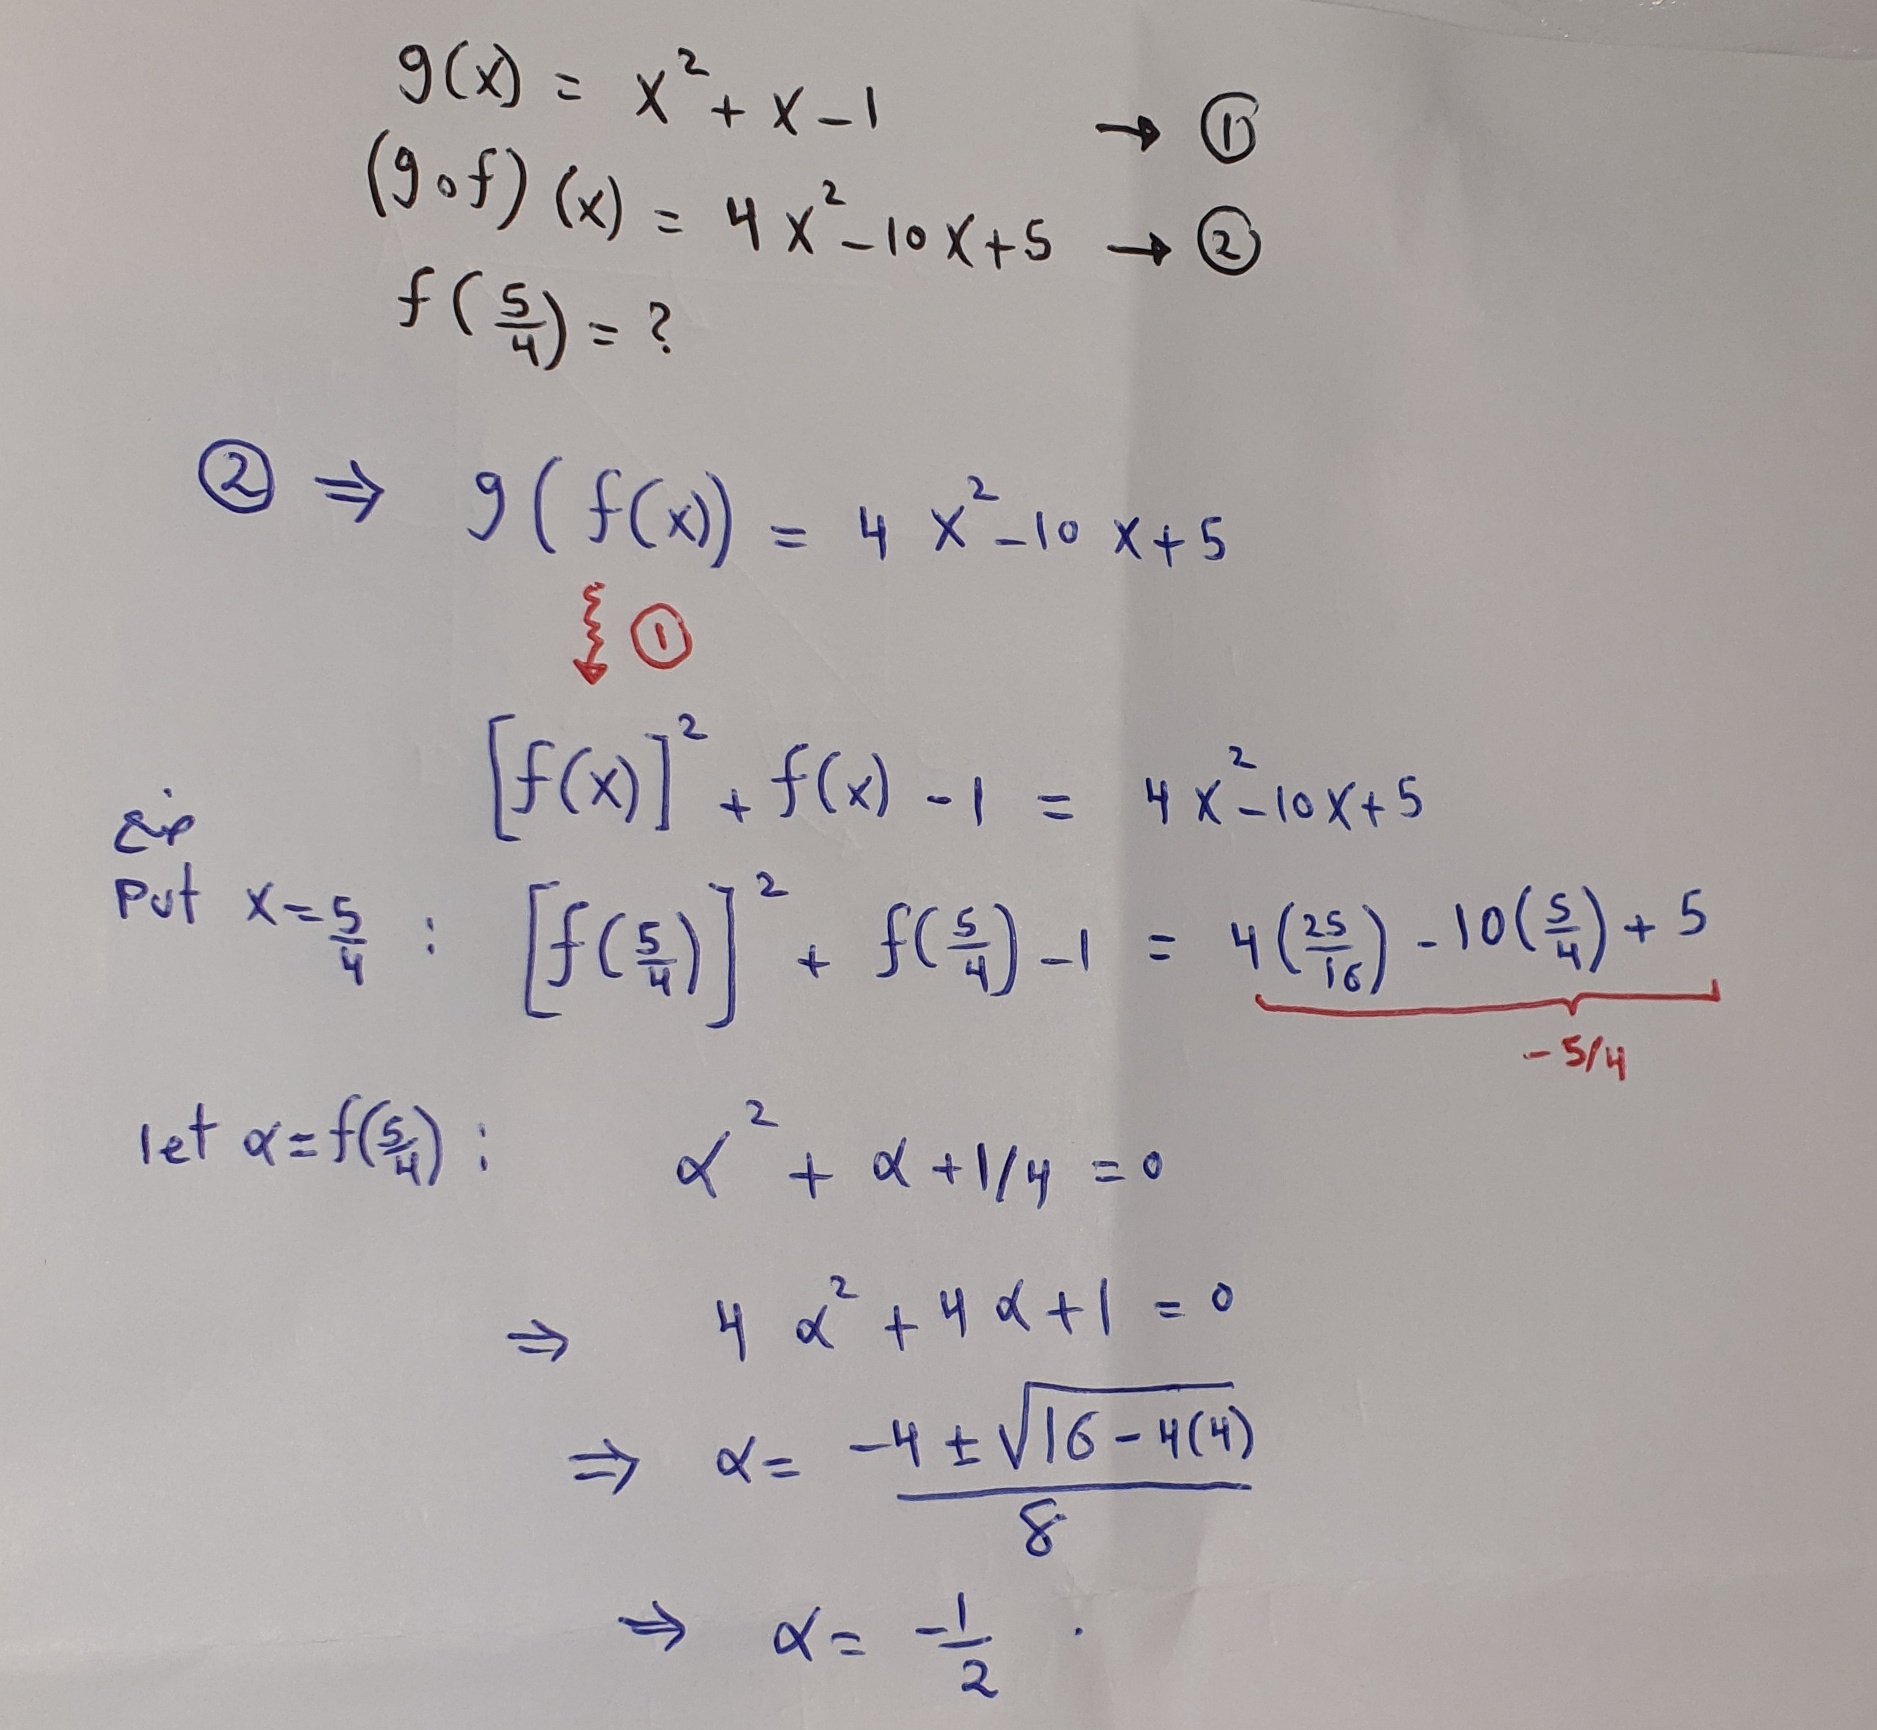 g(x) = x² + x - 1 → ①
(g∘f)(x) = 4x² - 10x + 5 → ②
f(5/4) = ?
② ⇒ g(f(x)) = 4x² - 10x + 5
①
[f(x)]² + f(x) - 1 = 4x² - 10x + 5
نضع
Put x = 5/4 : [f(5/4)]² + f(5/4) - 1 = 4(25/16) - 10(5/4) + 5
- 5/4
let α = f(5/4) : α² + α + 1/4 = 0
⇒ 4α² + 4α + 1 = 0
⇒ α = (-4 ± √(16 - 4(4)))/8
⇒ α = -1/2 .